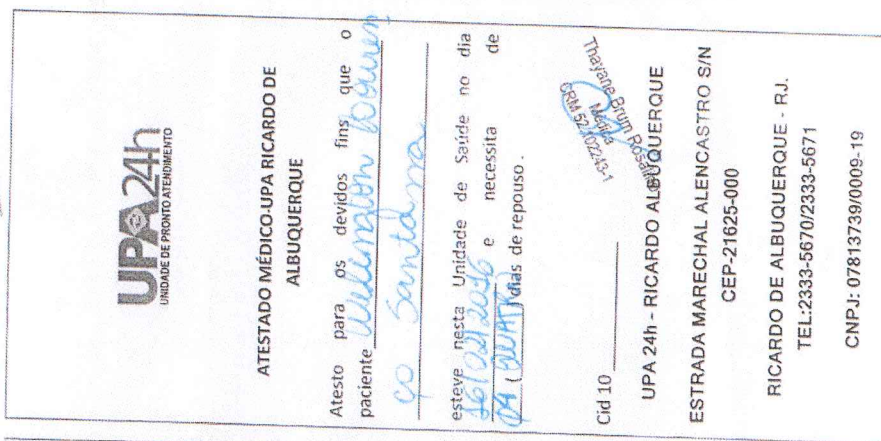 UPA 24h
UNIDADE DE PRONTO ATENDIMENTO
ATESTADO MÉDICO-UPA RICARDO DE
ALBUQUERQUE
Atesto para os devidos fins que o
paciente Welington Louren
ço Santana
esteve nesta Unidade de Saúde no dia
16/02/2016 e necessita de
04 (QUATRO) dias de repouso.
Thayane Brum
Médica
CRM
Cid 10
UPA 24h - RICARDO ALBUQUERQUE
ESTRADA MARECHAL ALENCASTRO S/N
CEP-21625-000
RICARDO DE ALBUQUERQUE - RJ.
TEL:2333-5670/2333-5671
CNPJ: 07813739/0009-19